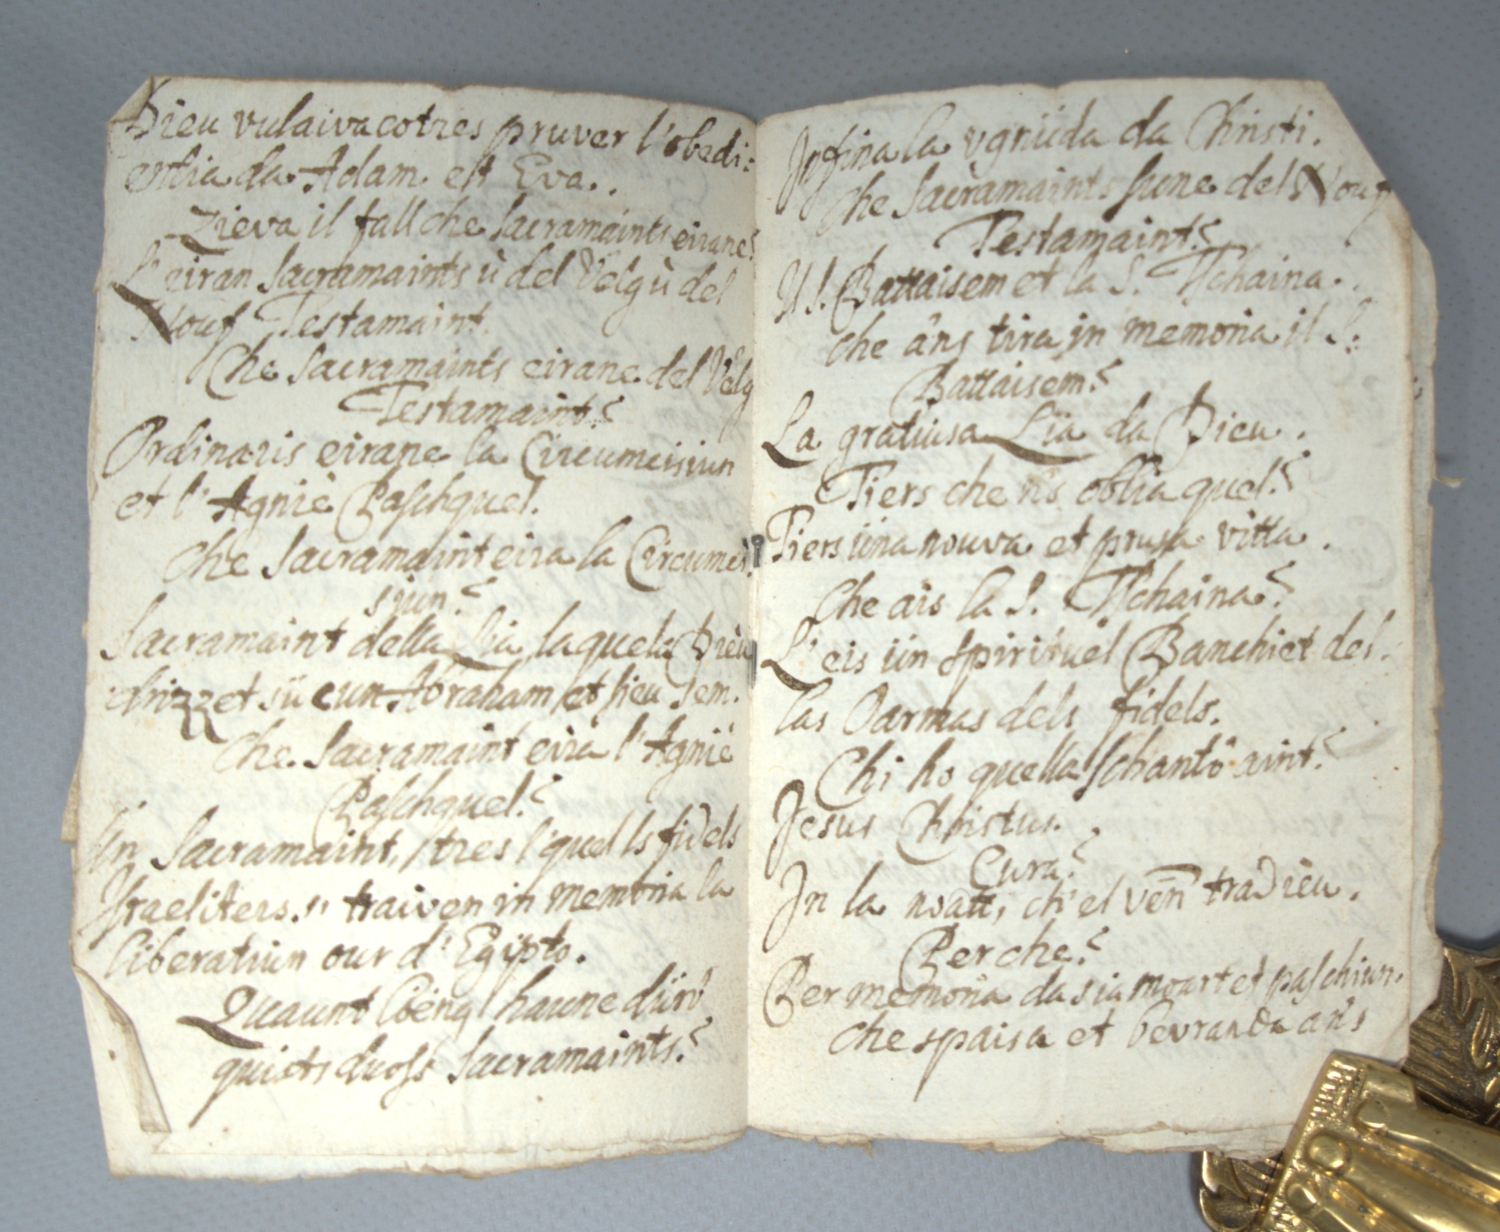 Dieu vulaiva cotres pruver l'obedi:
entia da Adam et Eva.
Zieva il fall che Sacramaints eirane?
L'eiran Sacramaints ù del Velg ù del
Nouf Testamaint.
Che Sacramaints eirane del Velg
Testamaint?
Ordinaris eirane la Circumcisiun
et l'Agniè Paschquel.
Che Sacramaint eira la Circumci:
siun?
Sacramaint della Lia laquela Dieu
drizzet sü cun Abraham et sieu sem.
Che Sacramaint eira l'Agniè
Paschquel?
Ün Sacramaint, tres l'quel ls fidels
Israeliters traiven in memoria la
liberatiun our d'Egipto.
Quaunt löeng haune dürò
quists duoss Sacramaints?
Infina la vgnüda da Christi.
Che Sacramaints sune dels Nouf
Testamaint?
Il S. Battaisem et la S. Tschaina.
Che ans tira in memoria il S:
Battaisem?
La gratiusa Lia da Dieu.
Tiers che n's oblia quel?
Tiers üna nouva et prusa vitta.
Che ais la S. Tschaina?
L'eis ün spirituel Banchiet del-
las Oarmas dels fidels.
Chi ho quella schantô aint?
Jesus Christus.
Cura?
In la noatt, ch'el ven tradieu.
Perche?
Per memoria da sia moart et paschiun.
Che spaisa et bevranda ans